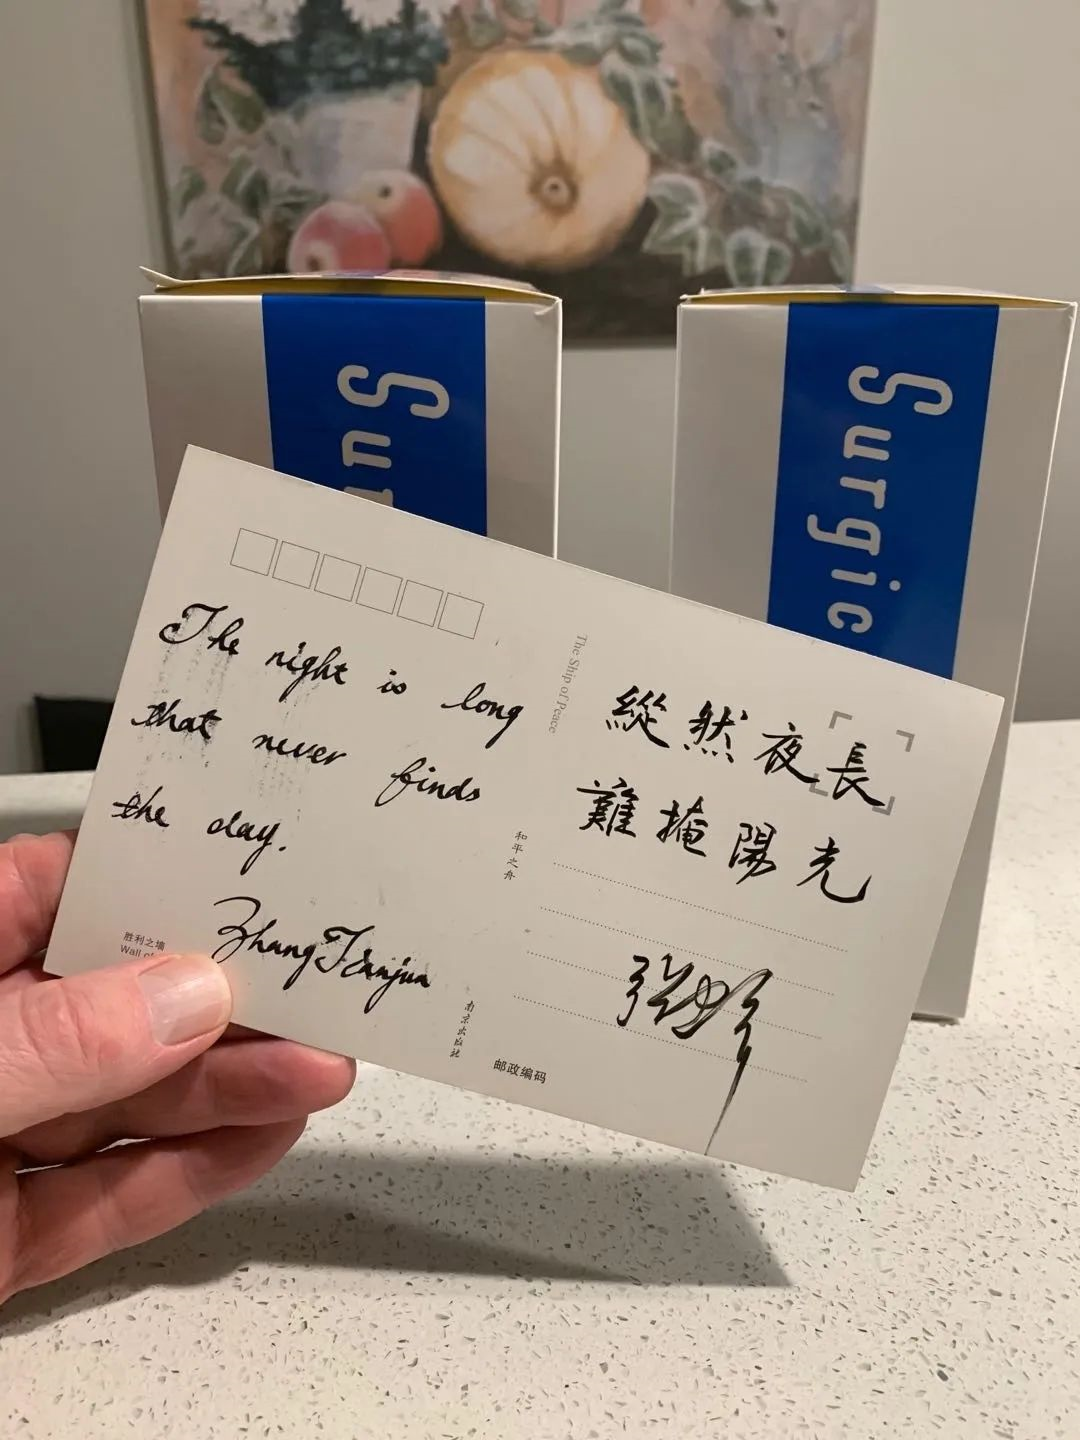 Su
Surgic
The night is long
that never finds
the day.
ZhangJianjun
胜利之墙
Wall of
The Ship of Peace
和平之舟
南京出版社
縱然夜長
難掩陽光
邮政编码